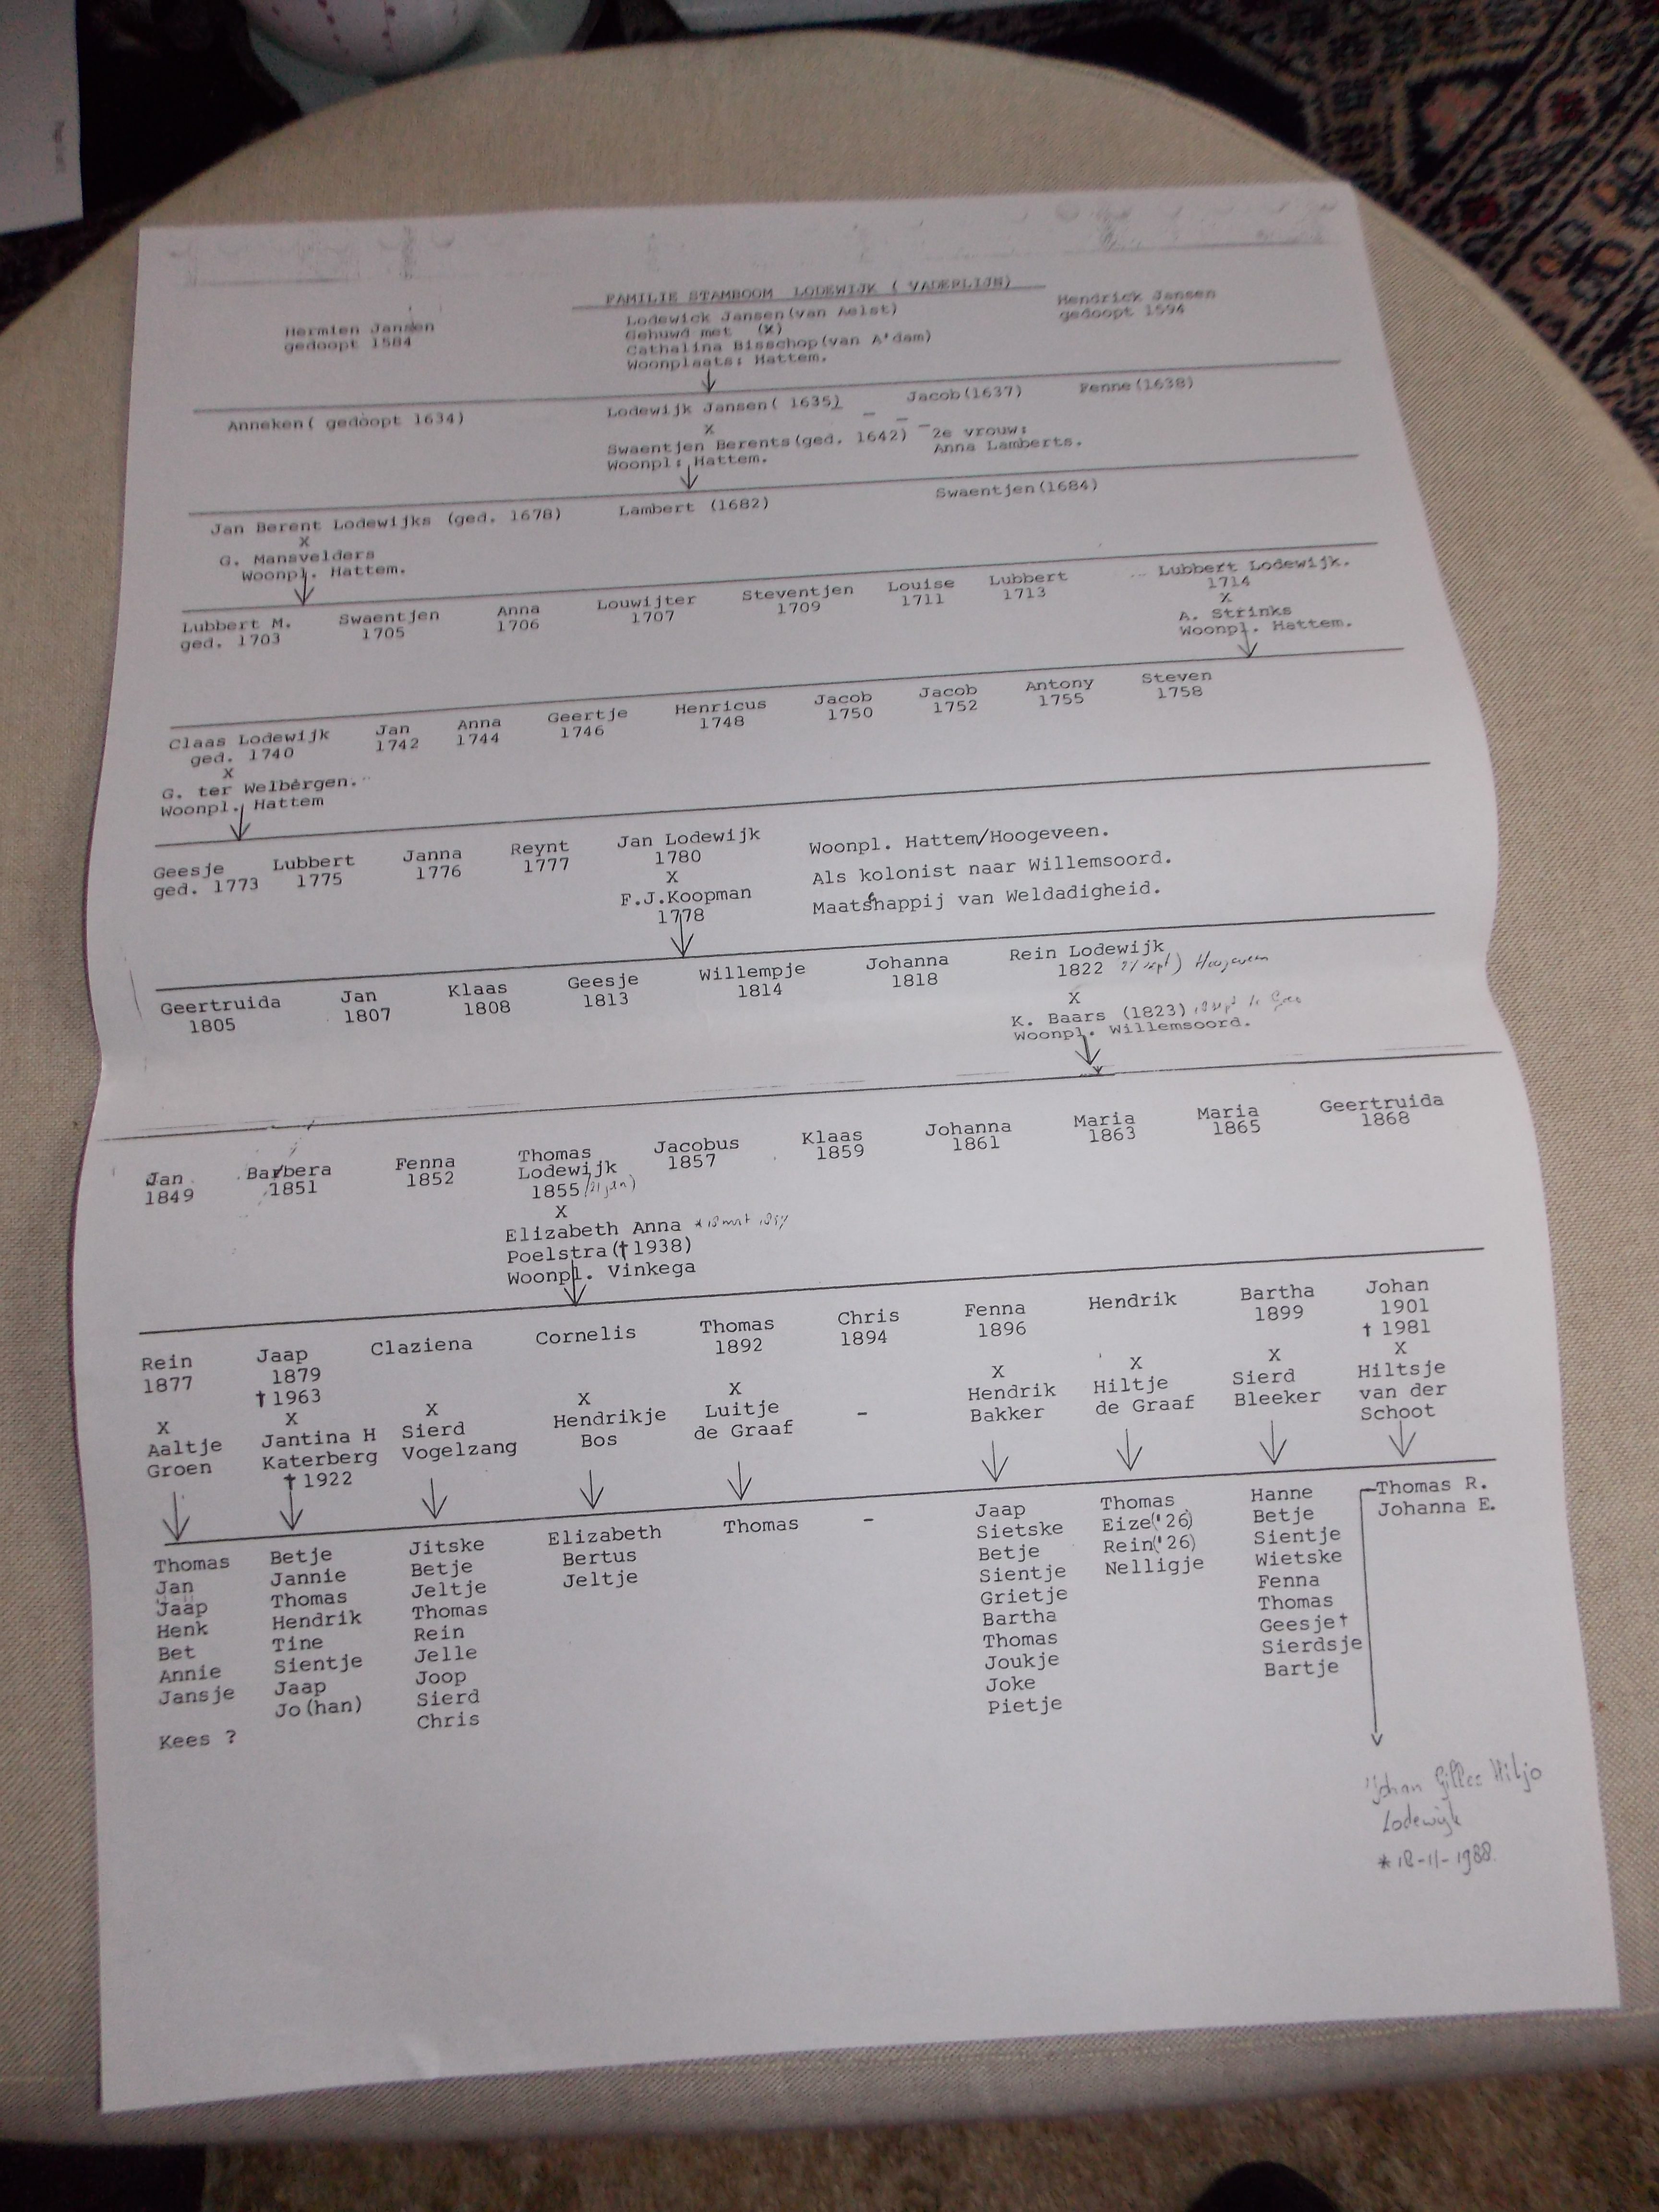 FAMILIE STAMBOOM LODEWIJK ( VADERLIJN)
Hermien Jansen
gedoopt 1584
Lodewick Jansen(van Aelst)
Gehuwd met (X)
Cathalina Bisschop(van A'dam)
Woonplaats: Hattem.
Hendrick Jansen
gedoopt 1594
Anneken( gedoopt 1634)
Lodewijk Jansen( 1635)
X
Swaentjen Berents(ged. 1642)
Woonpl: Hattem.
Jacob(1637)
Fenne(1638)
2e vrouw:
Anna Lamberts.
Jan Berent Lodewijks (ged. 1678)
X
G. Mansvelders
Woonpl. Hattem.
Lambert (1682)
Swaentjen(1684)
Lubbert M.
ged. 1703
Swaentjen
1705
Anna
1706
Louwijter
1707
Steventjen
1709
Louise
1711
Lubbert
1713
Lubbert Lodewijk.
1714
X
A. Strinks
Woonpl. Hattem.
Claas Lodewijk
ged. 1740
X
G. ter Welbergen.
Woonpl. Hattem
Jan
1742
Anna
1744
Geertje
1746
Henricus
1748
Jacob
1750
Jacob
1752
Antony
1755
Steven
1758
Geesje
ged. 1773
Lubbert
1775
Janna
1776
Reynt
1777
Jan Lodewijk
1780
X
F.J.Koopman
1778
Woonpl. Hattem/Hoogeveen.
Als kolonist naar Willemsoord.
Maatshappij van Weldadigheid.
Geertruida
1805
Jan
1807
Klaas
1808
Geesje
1813
Willempje
1814
Johanna
1818
Rein Lodewijk
1822 Hoogeveen
X
K. Baars (1823)
Woonpl. Willemsoord.
Jan
1849
Barbera
1851
Fenna
1852
Thomas
Lodewijk
1855 (21 jan)
X
Elizabeth Anna
Poelstra(†1938)
Woonpl. Vinkega
Jacobus
1857
Klaas
1859
Johanna
1861
Maria
1863
Maria
1865
Geertruida
1868
Rein
1877
X
Aaltje
Groen
Jaap
1879
†1963
X
Jantina H
Katerberg
†1922
Claziena
X
Sierd
Vogelzang
Cornelis
X
Hendrikje
Bos
Thomas
1892
X
Luitje
de Graaf
Chris
1894
-
Fenna
1896
X
Hendrik
Bakker
Hendrik
X
Hiltje
de Graaf
Bartha
1899
X
Sierd
Bleeker
Johan
1901
† 1981
X
Hiltsje
van der
Schoot
Thomas
Jan
Jaap
Henk
Bet
Annie
Jansje
Kees ?
Betje
Jannie
Thomas
Hendrik
Tine
Sientje
Jaap
Jo(han)
Jitske
Betje
Jeltje
Thomas
Rein
Jelle
Joop
Sierd
Chris
Elizabeth
Bertus
Jeltje
Thomas
-
Jaap
Sietske
Betje
Sientje
Grietje
Bartha
Thomas
Joukje
Joke
Pietje
Thomas
Eize('26)
Rein('26)
Nelligje
Hanne
Betje
Sientje
Wietske
Fenna
Thomas
Geesje†
Sierdsje
Bartje
Thomas R.
Johanna E.
Johan Gilles Hiljo
Lodewijk
* 18-11-1988.